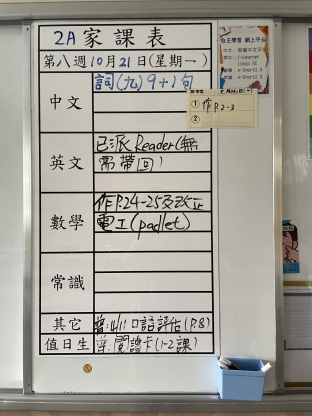 2A 家課表
第八週 10月21日(星期一)
中文
詞(九)9+1句
① 作P.2-3
②
英文
已派Reader(無
需帶回)
數學
作P.24-25及改正
電工(padlet)
常識
其它
普:4/11口語評估(P.8)
值日生
普:閱讀卡(1-2課)
自主學習 網上平台